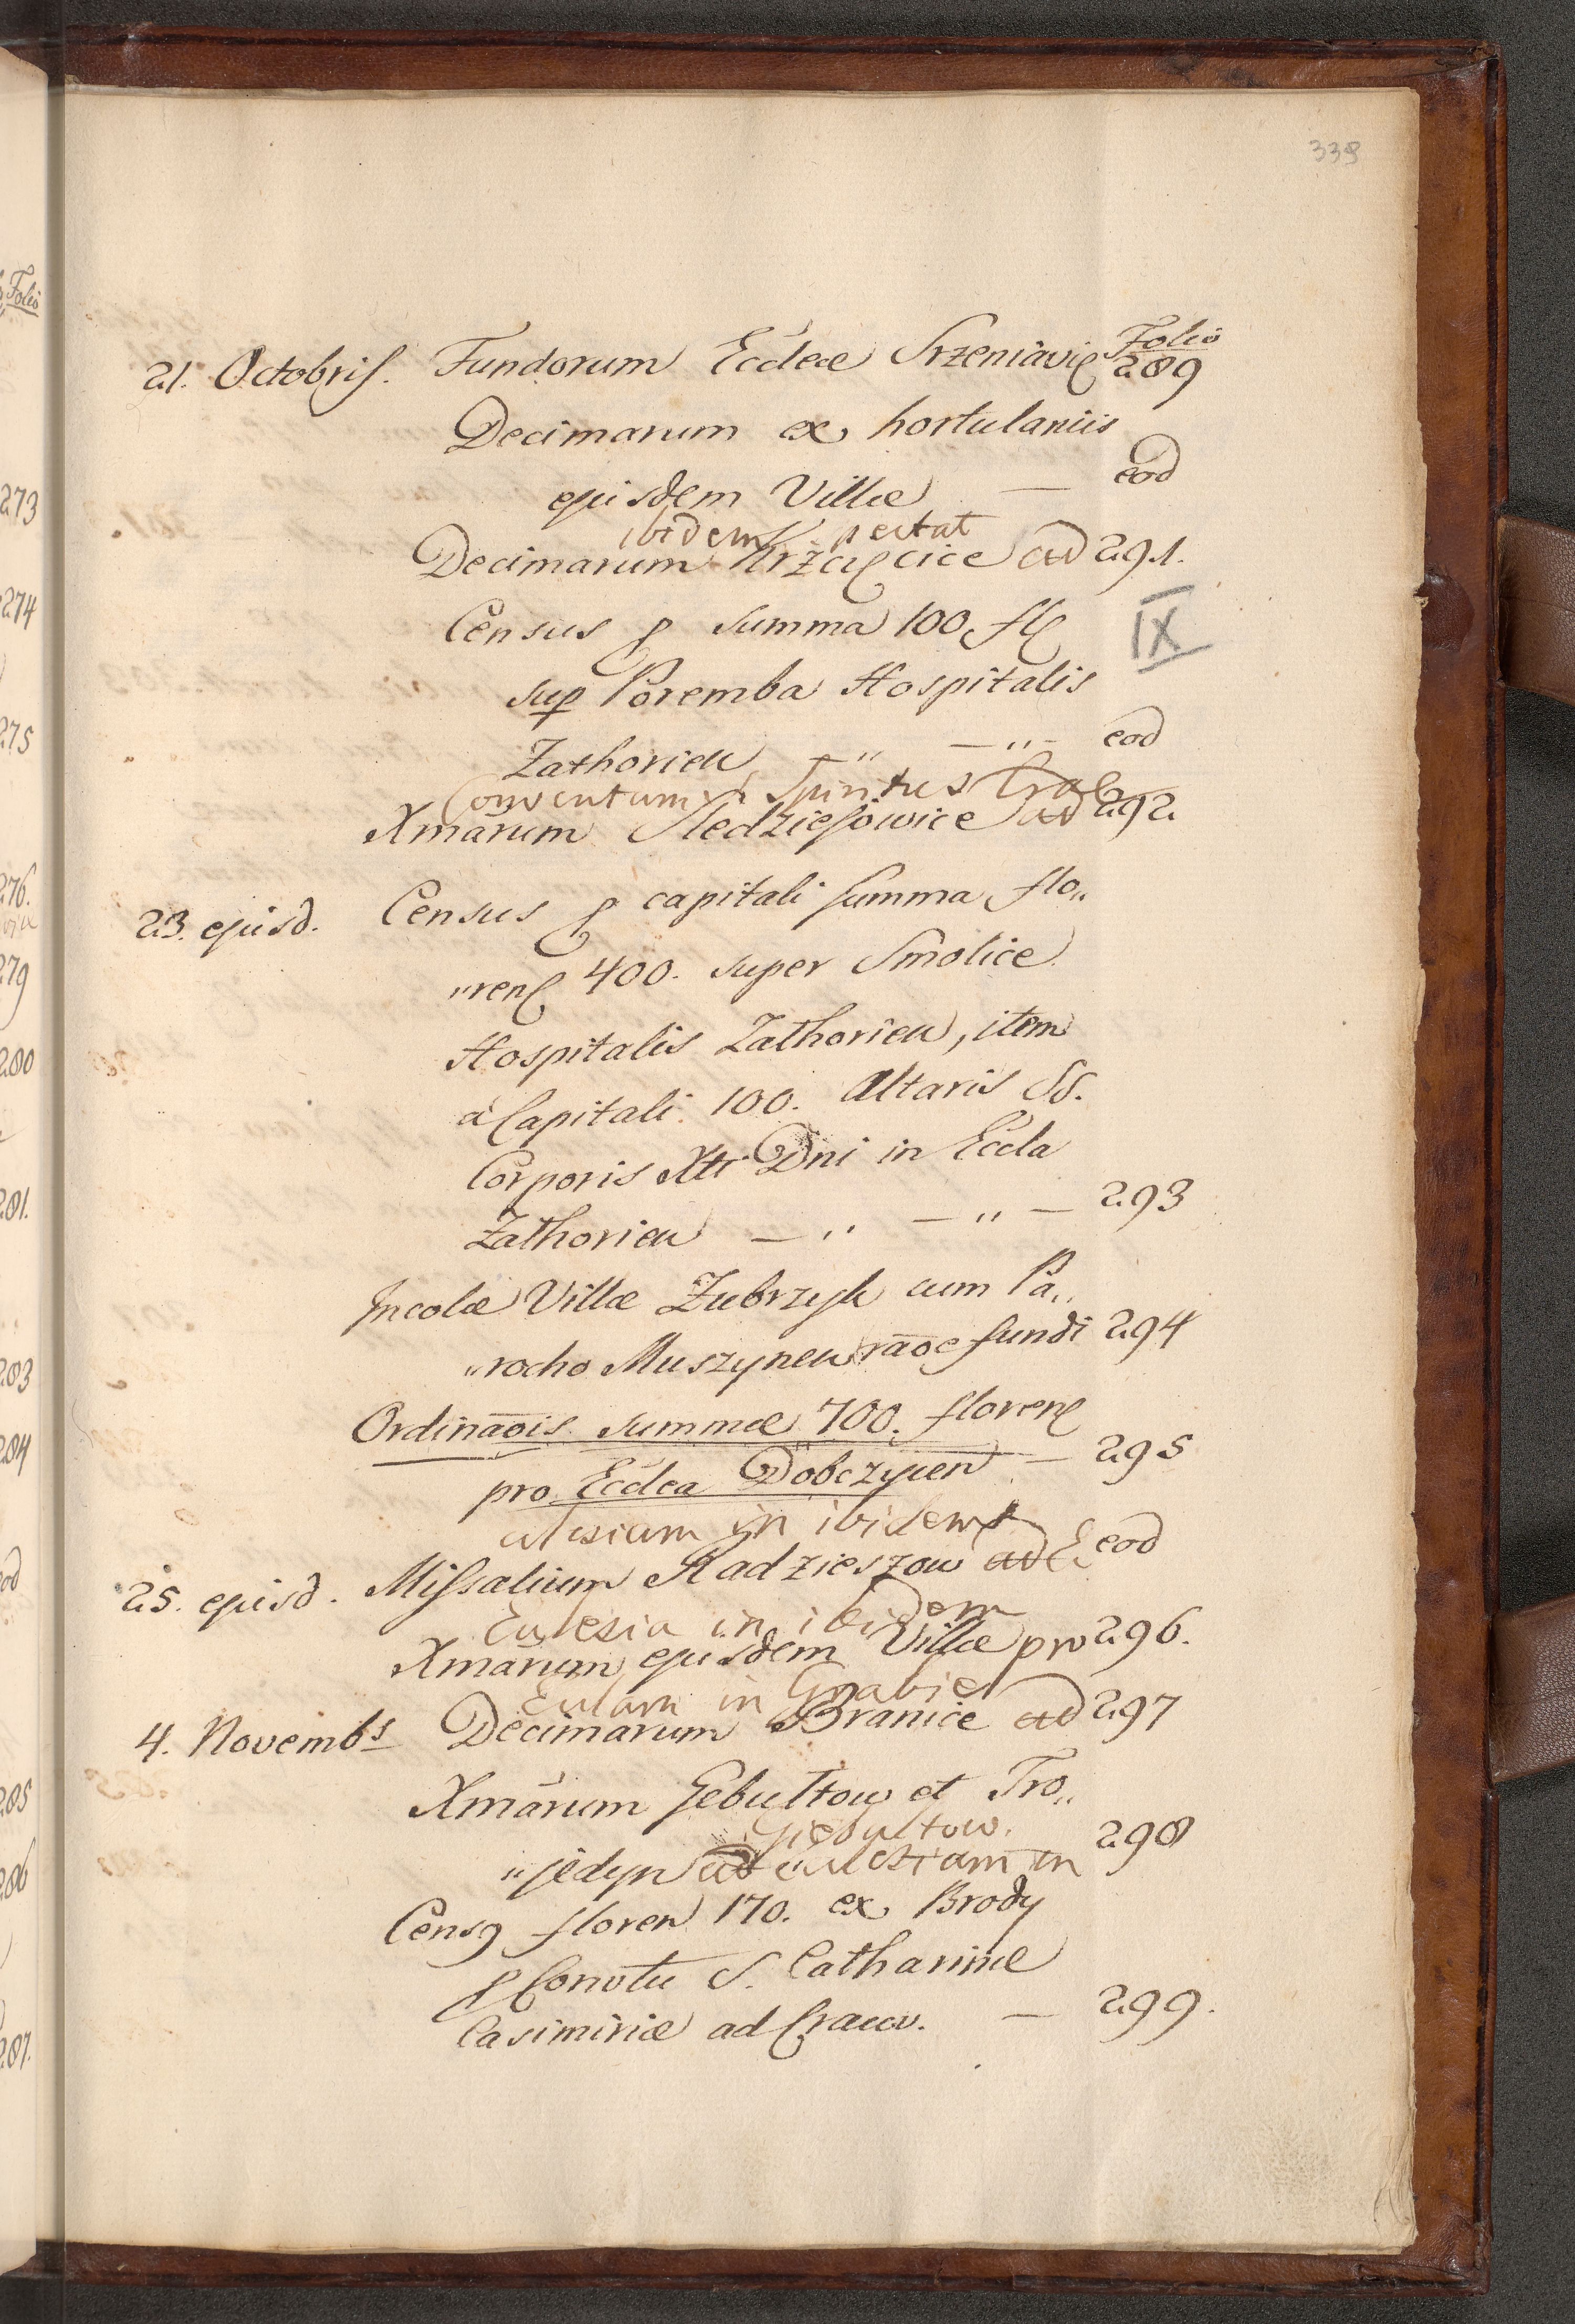 339
Folio
21. Octobris. Fundorum Ecclae Srzeniavie 289
Decimarum ex hortulaniis
ejusdem Villae — eod
ibidem
Decimarum Krzęcice ad 291.
Census p summa 100 fl
IX
sup Poremba Hospitalis
Zathorien „ — „ — eod
Conventum S Spiritus Crac
Xmarum Sledziejowice ad 292
23. ejusd. Census p capitali summa flo„
„ren 400. super Smolice
Hospitalis Zathorien, item
à Capitali 100. Altaris SS.
Corporis Xti Dni in Eccla
Zathorien — „ — „ — 293
Incolae Villae Zubrzyk cum Pa„
„rocho Muszynen raõe fundi 294
Ordinaõis summae 700. floren
pro Ecclea Dobczycen — 295
clesiam in ibidem
25. ejusd. Missalium Radzieszow ad Ec eod
Eclesia in ibidem
Xmarum ejusdem Villae pro 296.
Eclam in Grabie
4. Novembs Decimarum Branice ad 297
Xmarum Gebultow et Tro„
Giebultow.
„jedyn ad eclesiam in 298
Censq floren 170. ex Brody
p Convtu S. Catharinae
Casimiriae ad Cracov. — 299.
Folio
273
274
275
276.
279
280
281.
283
284
eod
285
286
287.